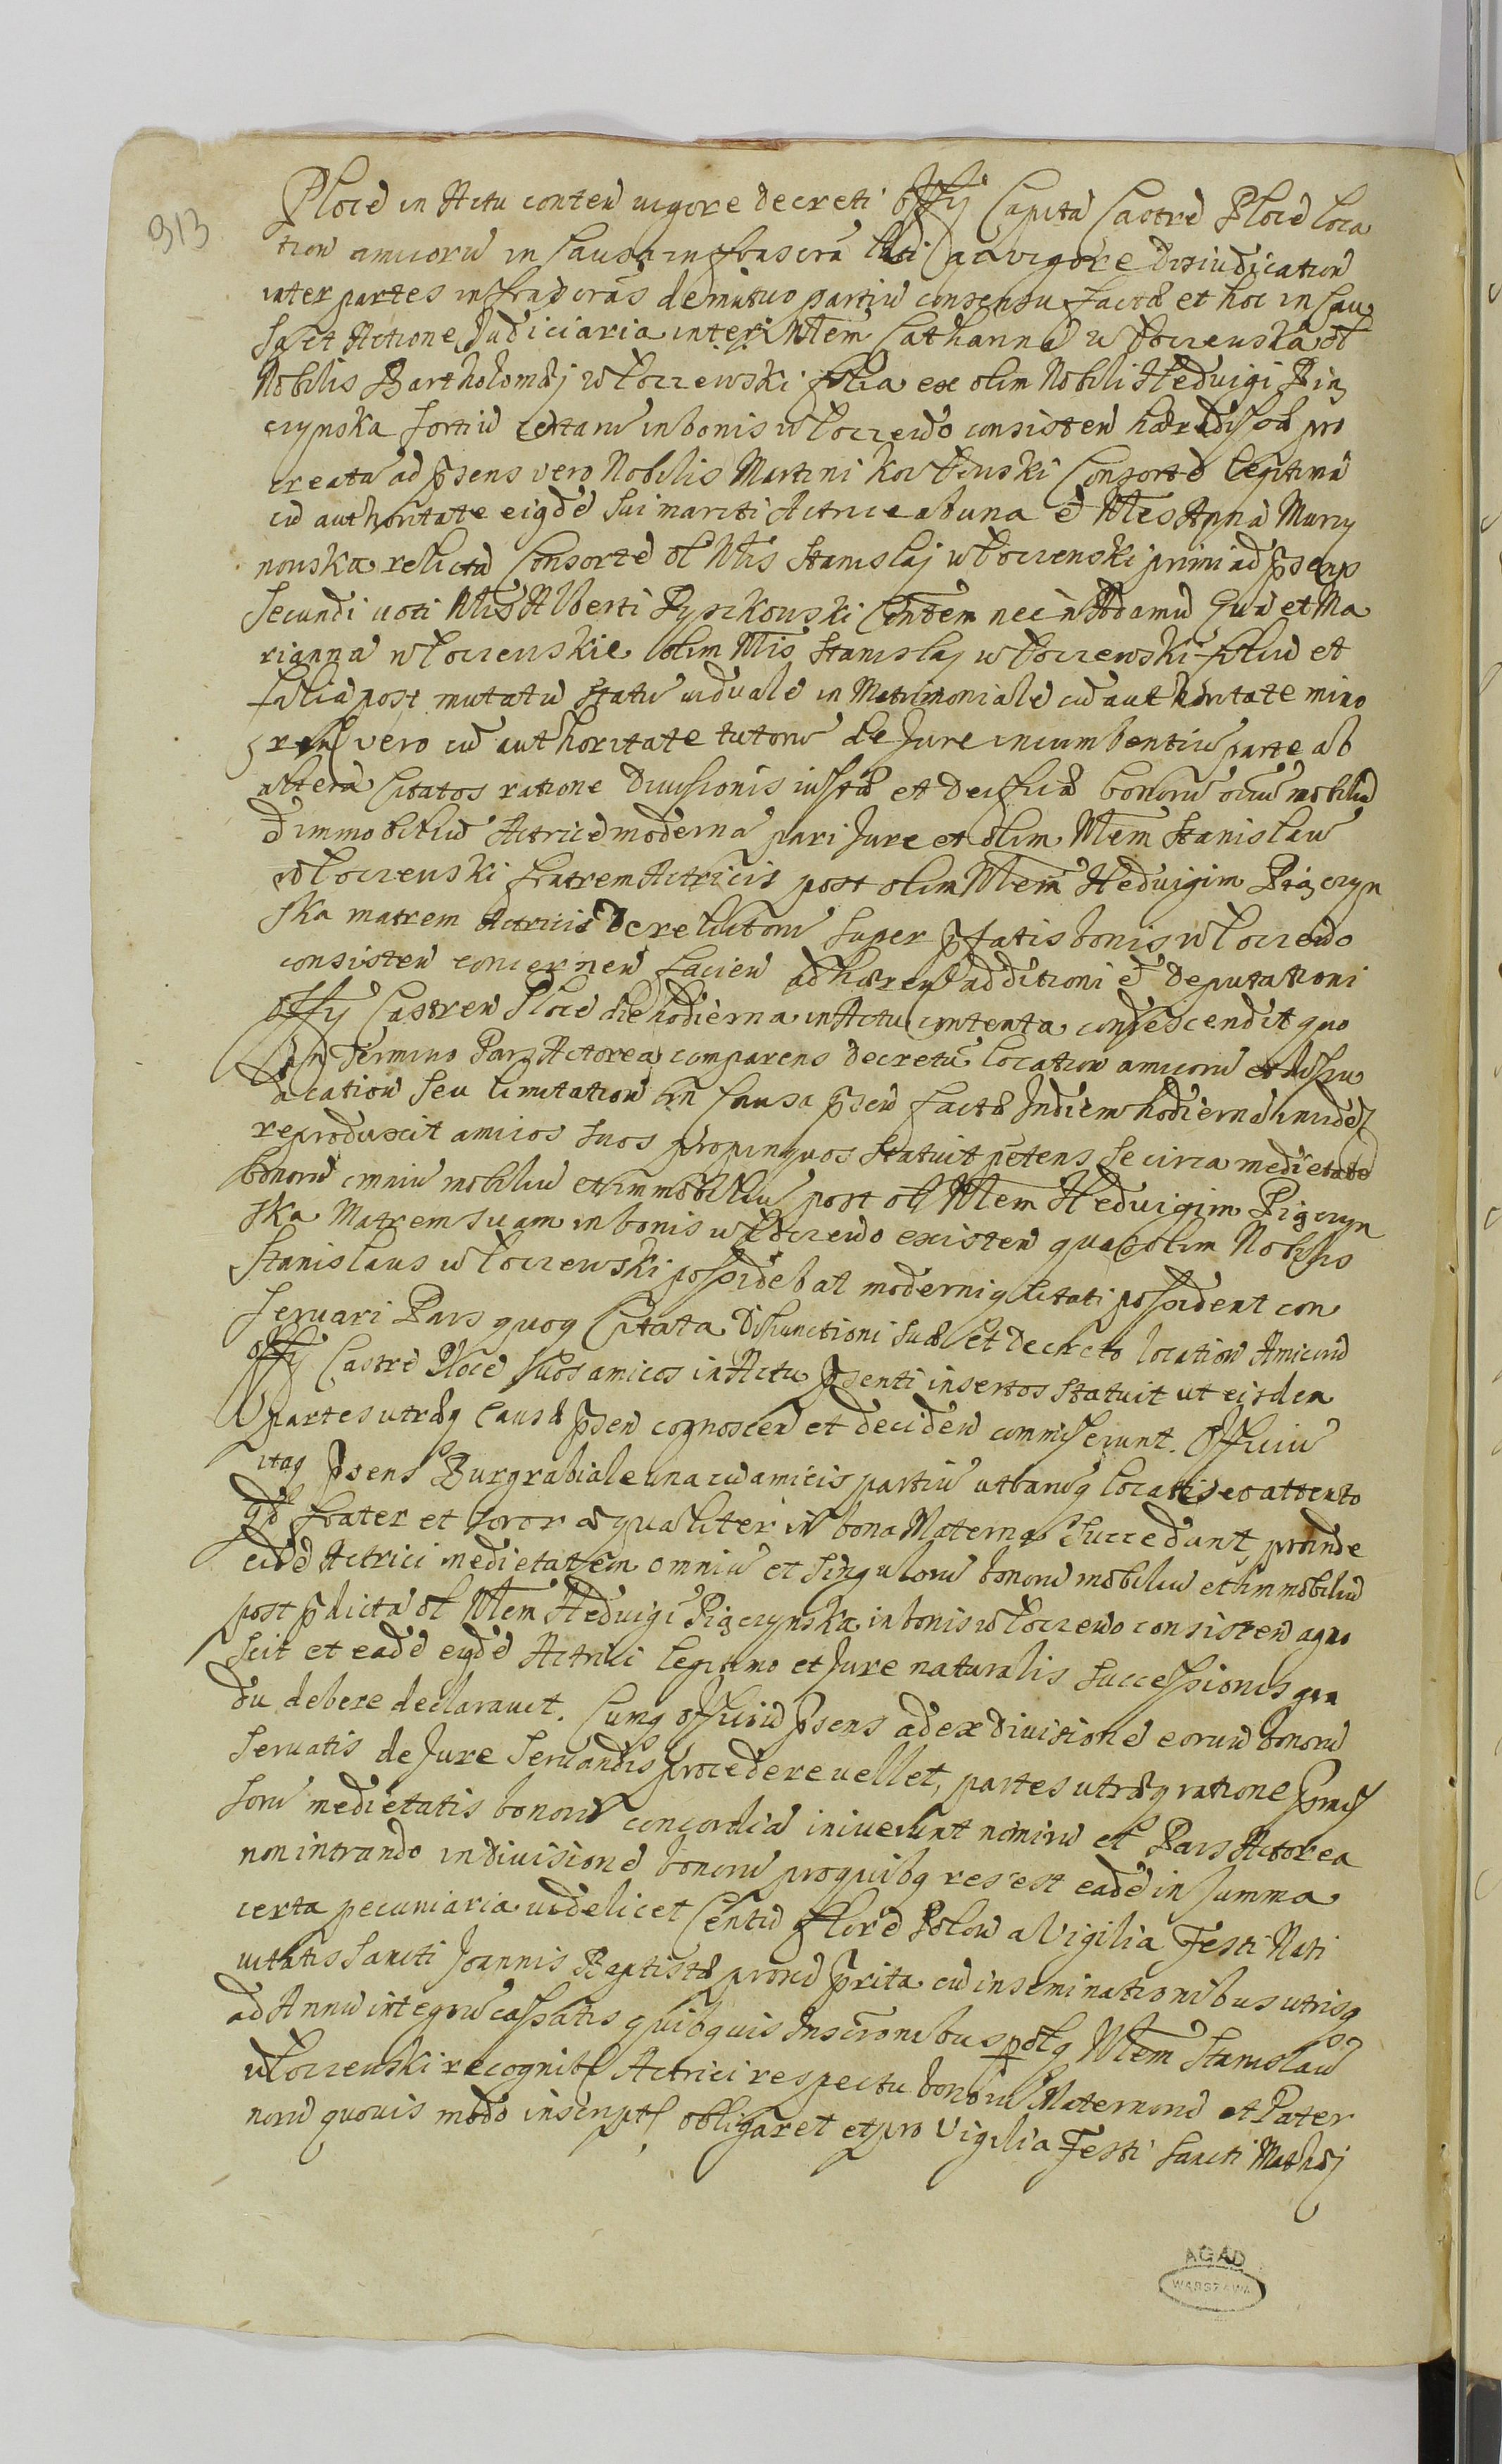 913
Plocen in Actu conten vigore decreti Offij Capita Castren Plocen loca
tion amicoru in Causa infrascra lati ac vigore disiudication
inter partes infrascras de mutuo partiu consensu factæ et hoc in Cau
sa et Actione Judiciaria inter Nblem Catharina wloczewska ol
Nobilis Bartholomæj wloczewski filia ex olim Nobili Hedvigi Pig
czynska sortiu certaru in bonis wloczewo consisten hæredissa pro
creata ad psens vero Nobilis Martini Kowlewski Consorte legitima
cu authoritate eigde sui mariti Actrice ab una et Nbles Anna Murzy
nouska relicta Consorte ol Nblis Stanislaj wloczenski primi ad psens
secundi voti Nblis Alberti Rypikouski Conten nec n Adamu Qua et Ma
rianna wloczenskie olim Nblis Stanislaj wloczewski filiu et
filia post mutatu statu viduale in Matrimoniale cu authoritate mino
ren vero cu authoritate tutoru de Jure incumbentiu parte ab
altera Citatos ratione divisionis iustæ et bonoru oium mobiliu
et immobiliu Actrice moderna pari Jure et olim Nblem Stanislau
wloczenski fratrem Actricis post olim Nblem Hedvigim Pigczyn
ska matrem Actricis derelictoru super pfatis bonis wloczewo
consisten concernen facien adhæren additioni et deputationi
Offij Castren Plocen die hodierna in Actu contenta condescendit quo
in Termino Pars Actorea comparens decretu location amicoru et disiu
dication seu limitation in Causa psen factæ Indiem hodierna
reproduxit amicos suos propinquos statuit petens se circa medietate
bonoru omniu mobiliu et immobiliu post ol Nblem Hedvigim Pigczyn
ska Matrem suam in bonis wloczewo existen quas olim Nobilis
Stanislaus wloczewski possidebat moderniq Citati possident con
servari Pars quoq Citata Disiunctioni suæ et Decreto location Amicoru
Offij Castren Plocen suos amicos in Actu psenti insertos statuit ut eisdem
partes utræq Causæ psen cognoscen et deciden commiserunt. Officiu
itaq psens Burgrabiale una cu amicis partiu utraruq locatis eo attento
qd frater et soror æqualiter in bona Materna succedant proinde
eide Actrici medietatem omniu et singuloru bonoru mobiliu et immobiliu
post pdicta ol Nblem Hedvigi Pigczynska in bonis wloczewo consisten agno
scit et eade eide Actrici legitimo et Jure naturalis successionis gra
du debere declaravit. Cumq officiu psens ad ex divisione eorum bonoru
servatis de Jure servandis procedere vellet, partes utræq ratione pmis
soru medietatis bonoru concordia iniverunt nimiru et Pars Actorea
non intrando in divisione bonoru pro quibq res est eade in summa
certa pecuniaria videlicet Centu floren Polon a Vigilia Festi Nati
vitatis Sancti Joannis Baptistæ proxi prita cu inseminationibus utrisq
ad Annu integru cassatis quibquis Inscronibus p olq Nblem Stanislau
wloczenski recognit Actrici respectu bonoru Maternoru et Pater
noru quovis modo inscript obligaret et pro Vigilia Festi Sancti Mathæj
AGAD
WARSZAWA